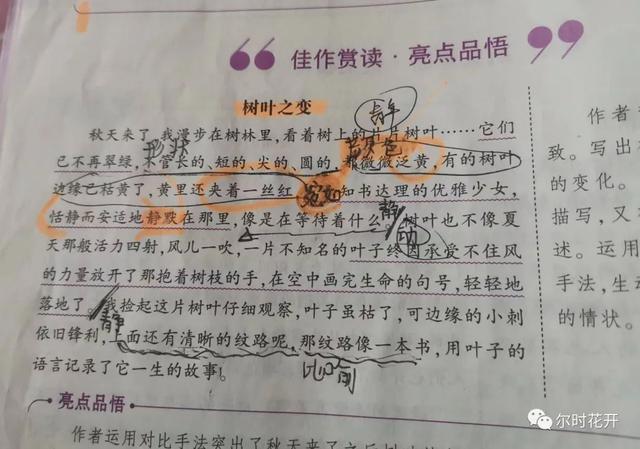 佳作赏读·亮点品悟
树叶之变
秋天来了，我漫步在树林里，看着树上的片片树叶……它们
已不再翠绿，不管长的、短的、尖的、圆的，都微微泛黄，有的树叶
边缘已枯黄了，黄里还夹着一丝红，宛如知书达理的优雅少女，
恬静而安适地静默在那里，像是在等待着什么。树叶也不像夏
天那般活力四射，风儿一吹，一片不知名的叶子终因承受不住风
的力量放开了那抱着树枝的手，在空中画完生命的句号，轻轻地
落地了。我捡起这片树叶仔细观察，叶子虽枯了，可边缘的小刺
依旧锋利，上面还有清晰的纹路呢，那纹路像一本书，用叶子的
语言记录了它一生的故事。
形状
颜色
静
动
静
比喻
亮点品悟
作者运用对比手法突出了秋天来了之后
作者
致。写出
的变化。
描写，又
述。运用
手法，生动
的情状。
尔时花开